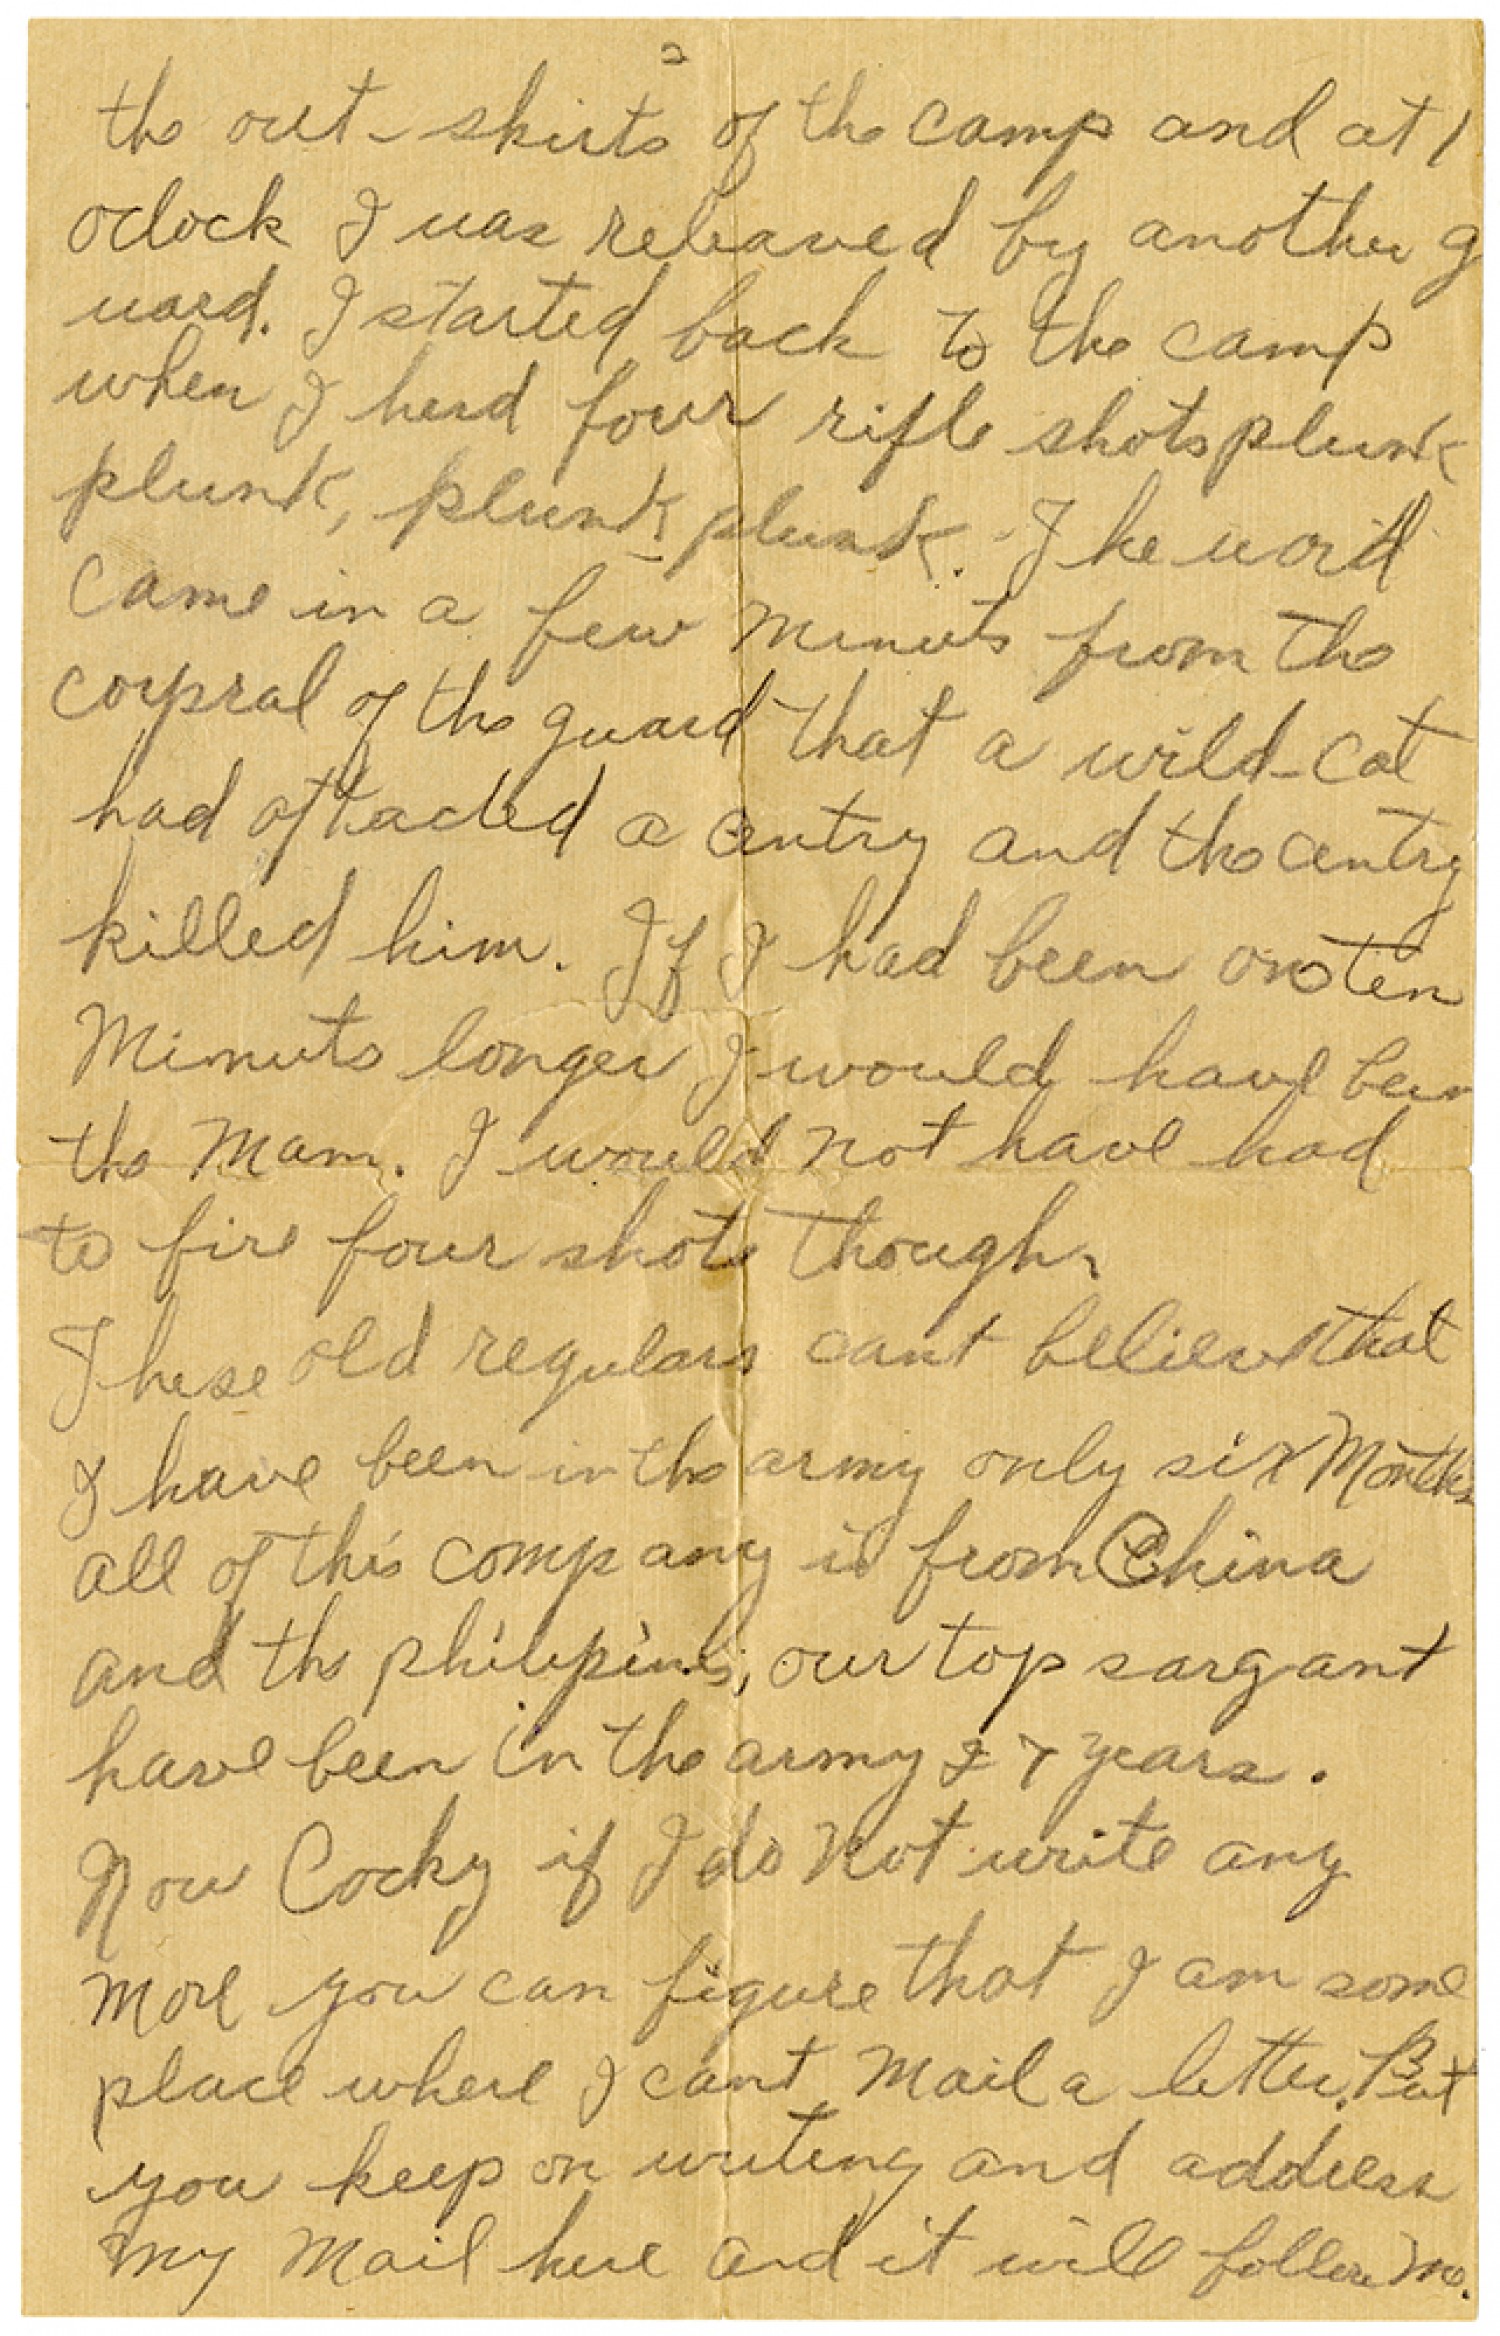 2
the out-skirts of the camp and at 1
oclock I was releaved by another g
uard. I started back to the camp
when I herd four rifle shots plunk
plunk, plunk plunk. The word
came in a few minuts from the
corpral of the guard that a wild-cat
had attacted a centry and the centry
killed him. If I had been on ten
Minuts longer I would have been
the Mam. I would not have had
to fire four shots though.
These old regulars cant believe that
I have been in the army only six Months
all of this company is from China
and the philipines, our top sargant
have been in the army 27 years.
Now Cocky if I do Not write any
More you can figure that I am some
place where I cant Mail a letter. But
you keep on writing and address
my Mail here and it will follow Me.